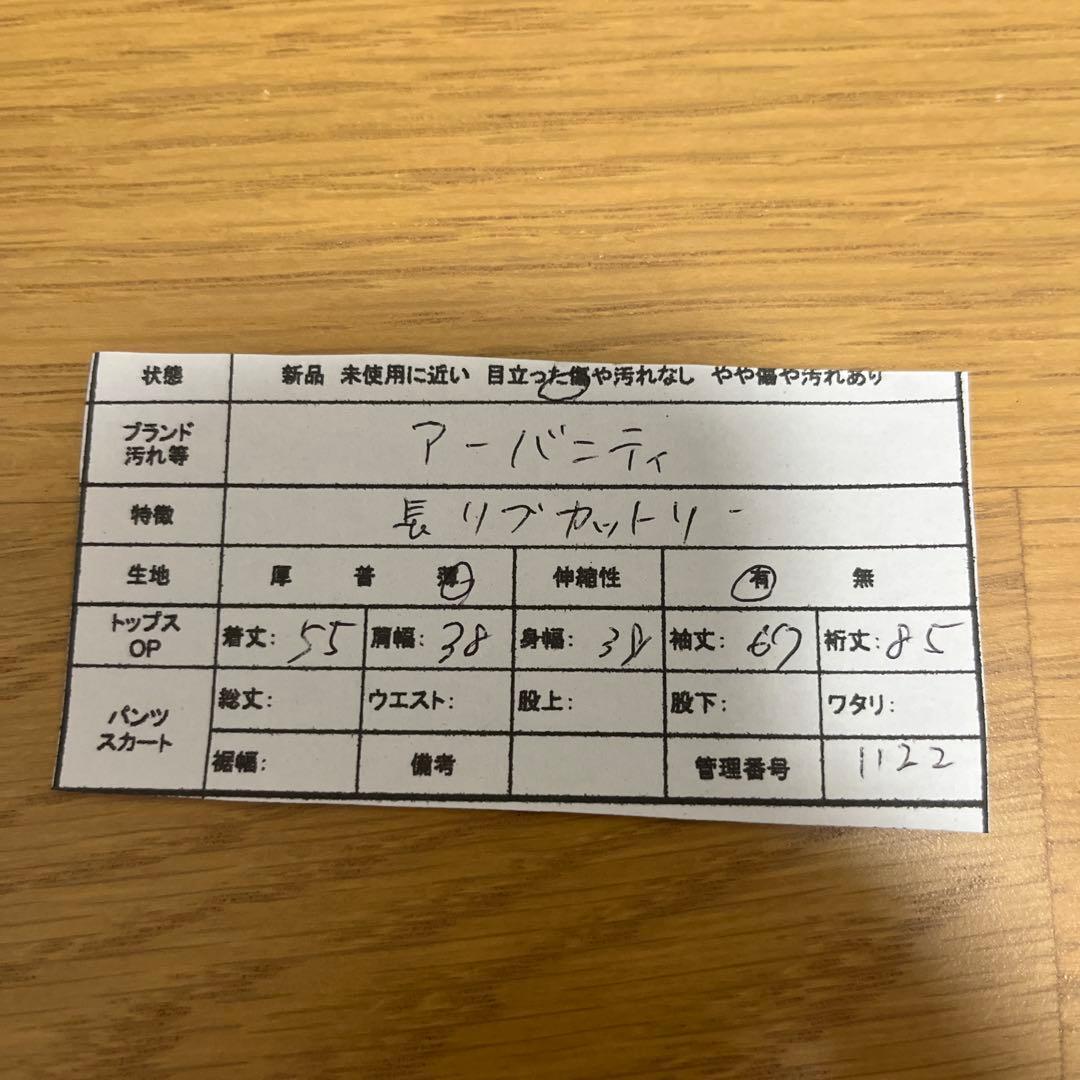 状態 新品 未使用に近い 目立った傷や汚れなし やや傷や汚れあり
ブランド
汚れ等
アーバニティ
特徴 長リブカットソー
生地 厚 普 薄 伸縮性 有 無
トップス
OP
着丈: 55 肩幅: 38 身幅: 38 袖丈: 67 裄丈: 85
パンツ
スカート
総丈: ウエスト: 股上: 股下: ワタリ:
裾幅: 備考 管理番号 1122